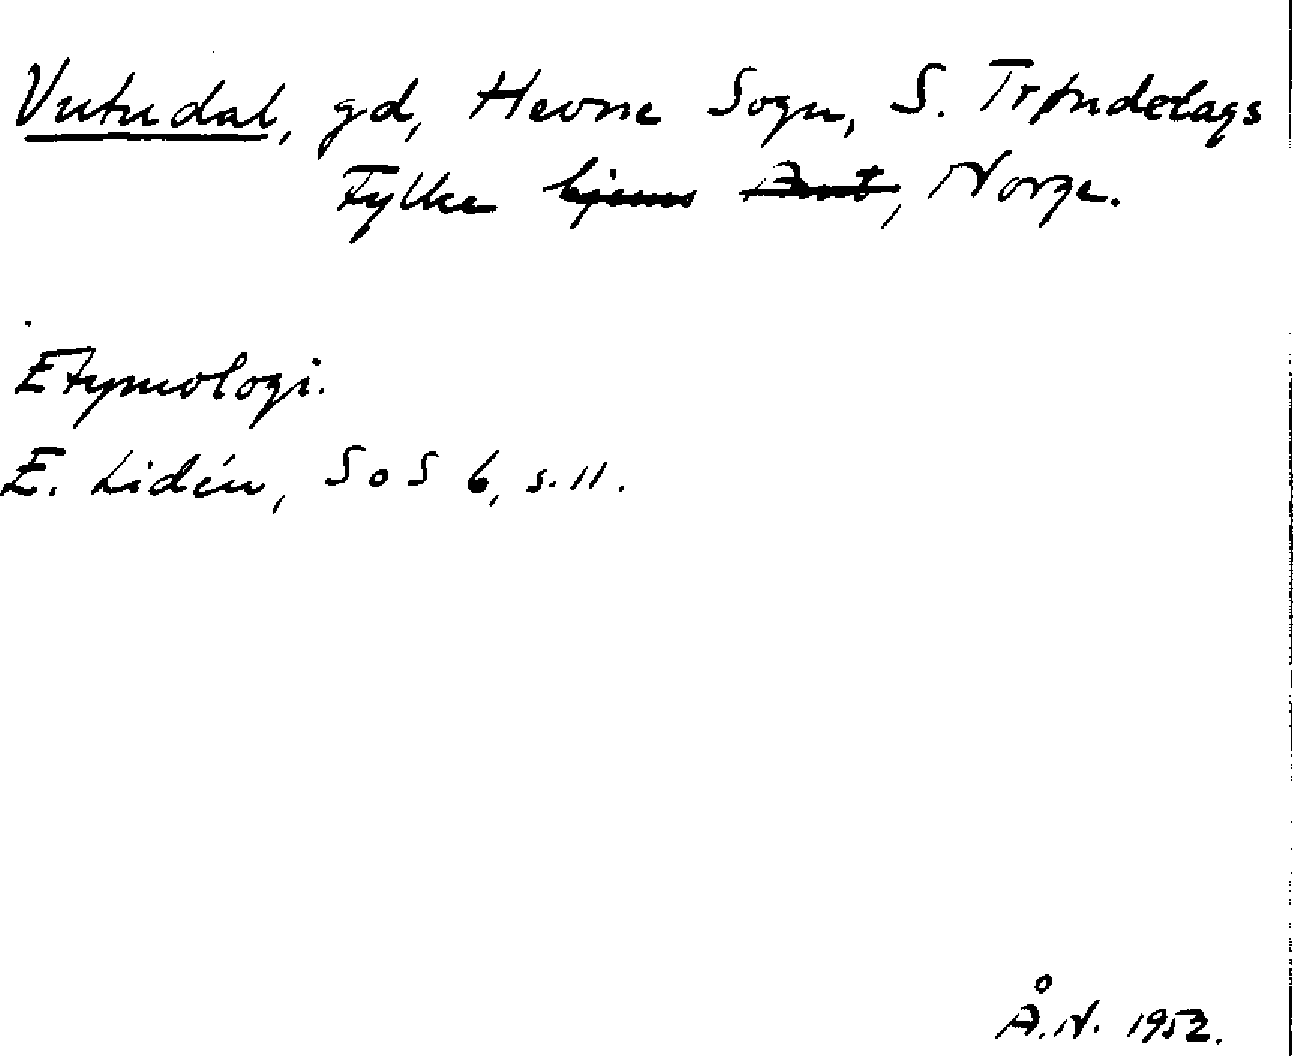 Vutudal, gd, Hevne Sogn, S. Trøndelags
Fylke hjems Amt, Norge.
Etymologi.
E. Lidén, SoS 6, s. 11.
Å.N. 1952.